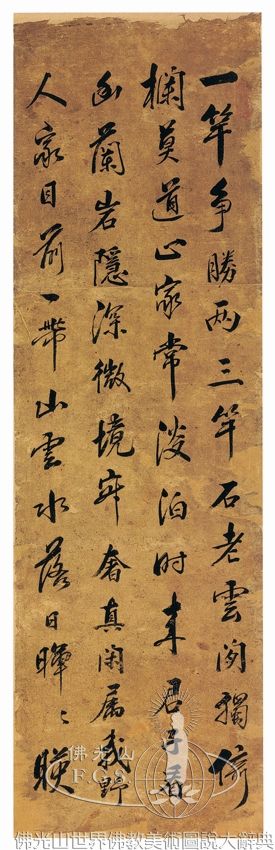 一竿爭勝兩三竿石老雲閑獨倚
欄莫道山家常淡泊时来君子着
幽蘭岩隱深微境寂奢真闲属我野
人家目前一帶山雲水落日暉〻映
佛光山
FGS
佛光山世界佛教美術圖說大辭典